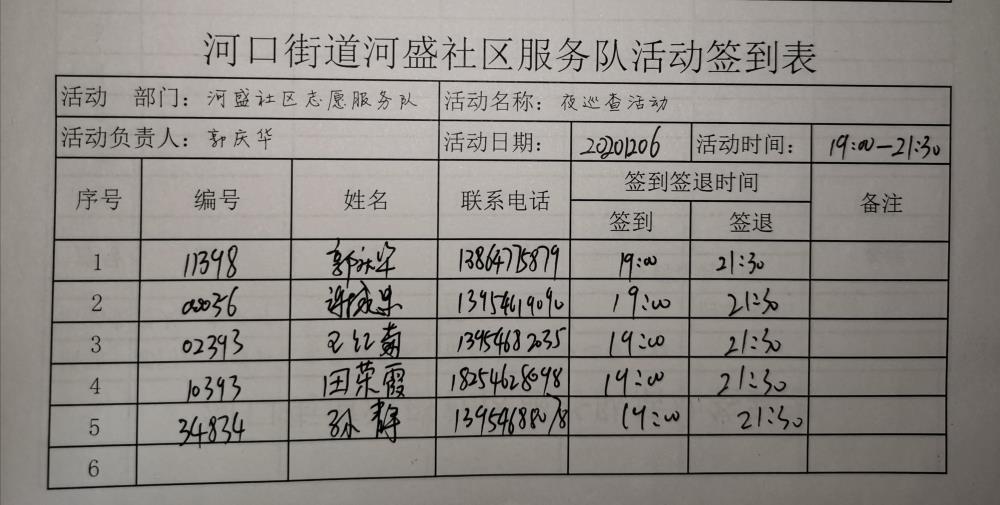 河口街道河盛社区服务队活动签到表
活动 部门：河盛社区志愿服务队 活动名称：夜巡查活动
活动负责人：郭庆华 活动日期：20201206 活动时间：19:00—21:30
序号 编号 姓名 联系电话 签到签退时间 备注
签到 签退
1 11398 郭庆华 13864775879 19:00 21:30
2 00036 13954619090 19:00 21:30
3 02393 王红菊 13954682035 19:00 21:30
4 10393 田荣霞 18254628098 19:00 21:30
5 34834 孙静 13954688078 19:00 21:30
6